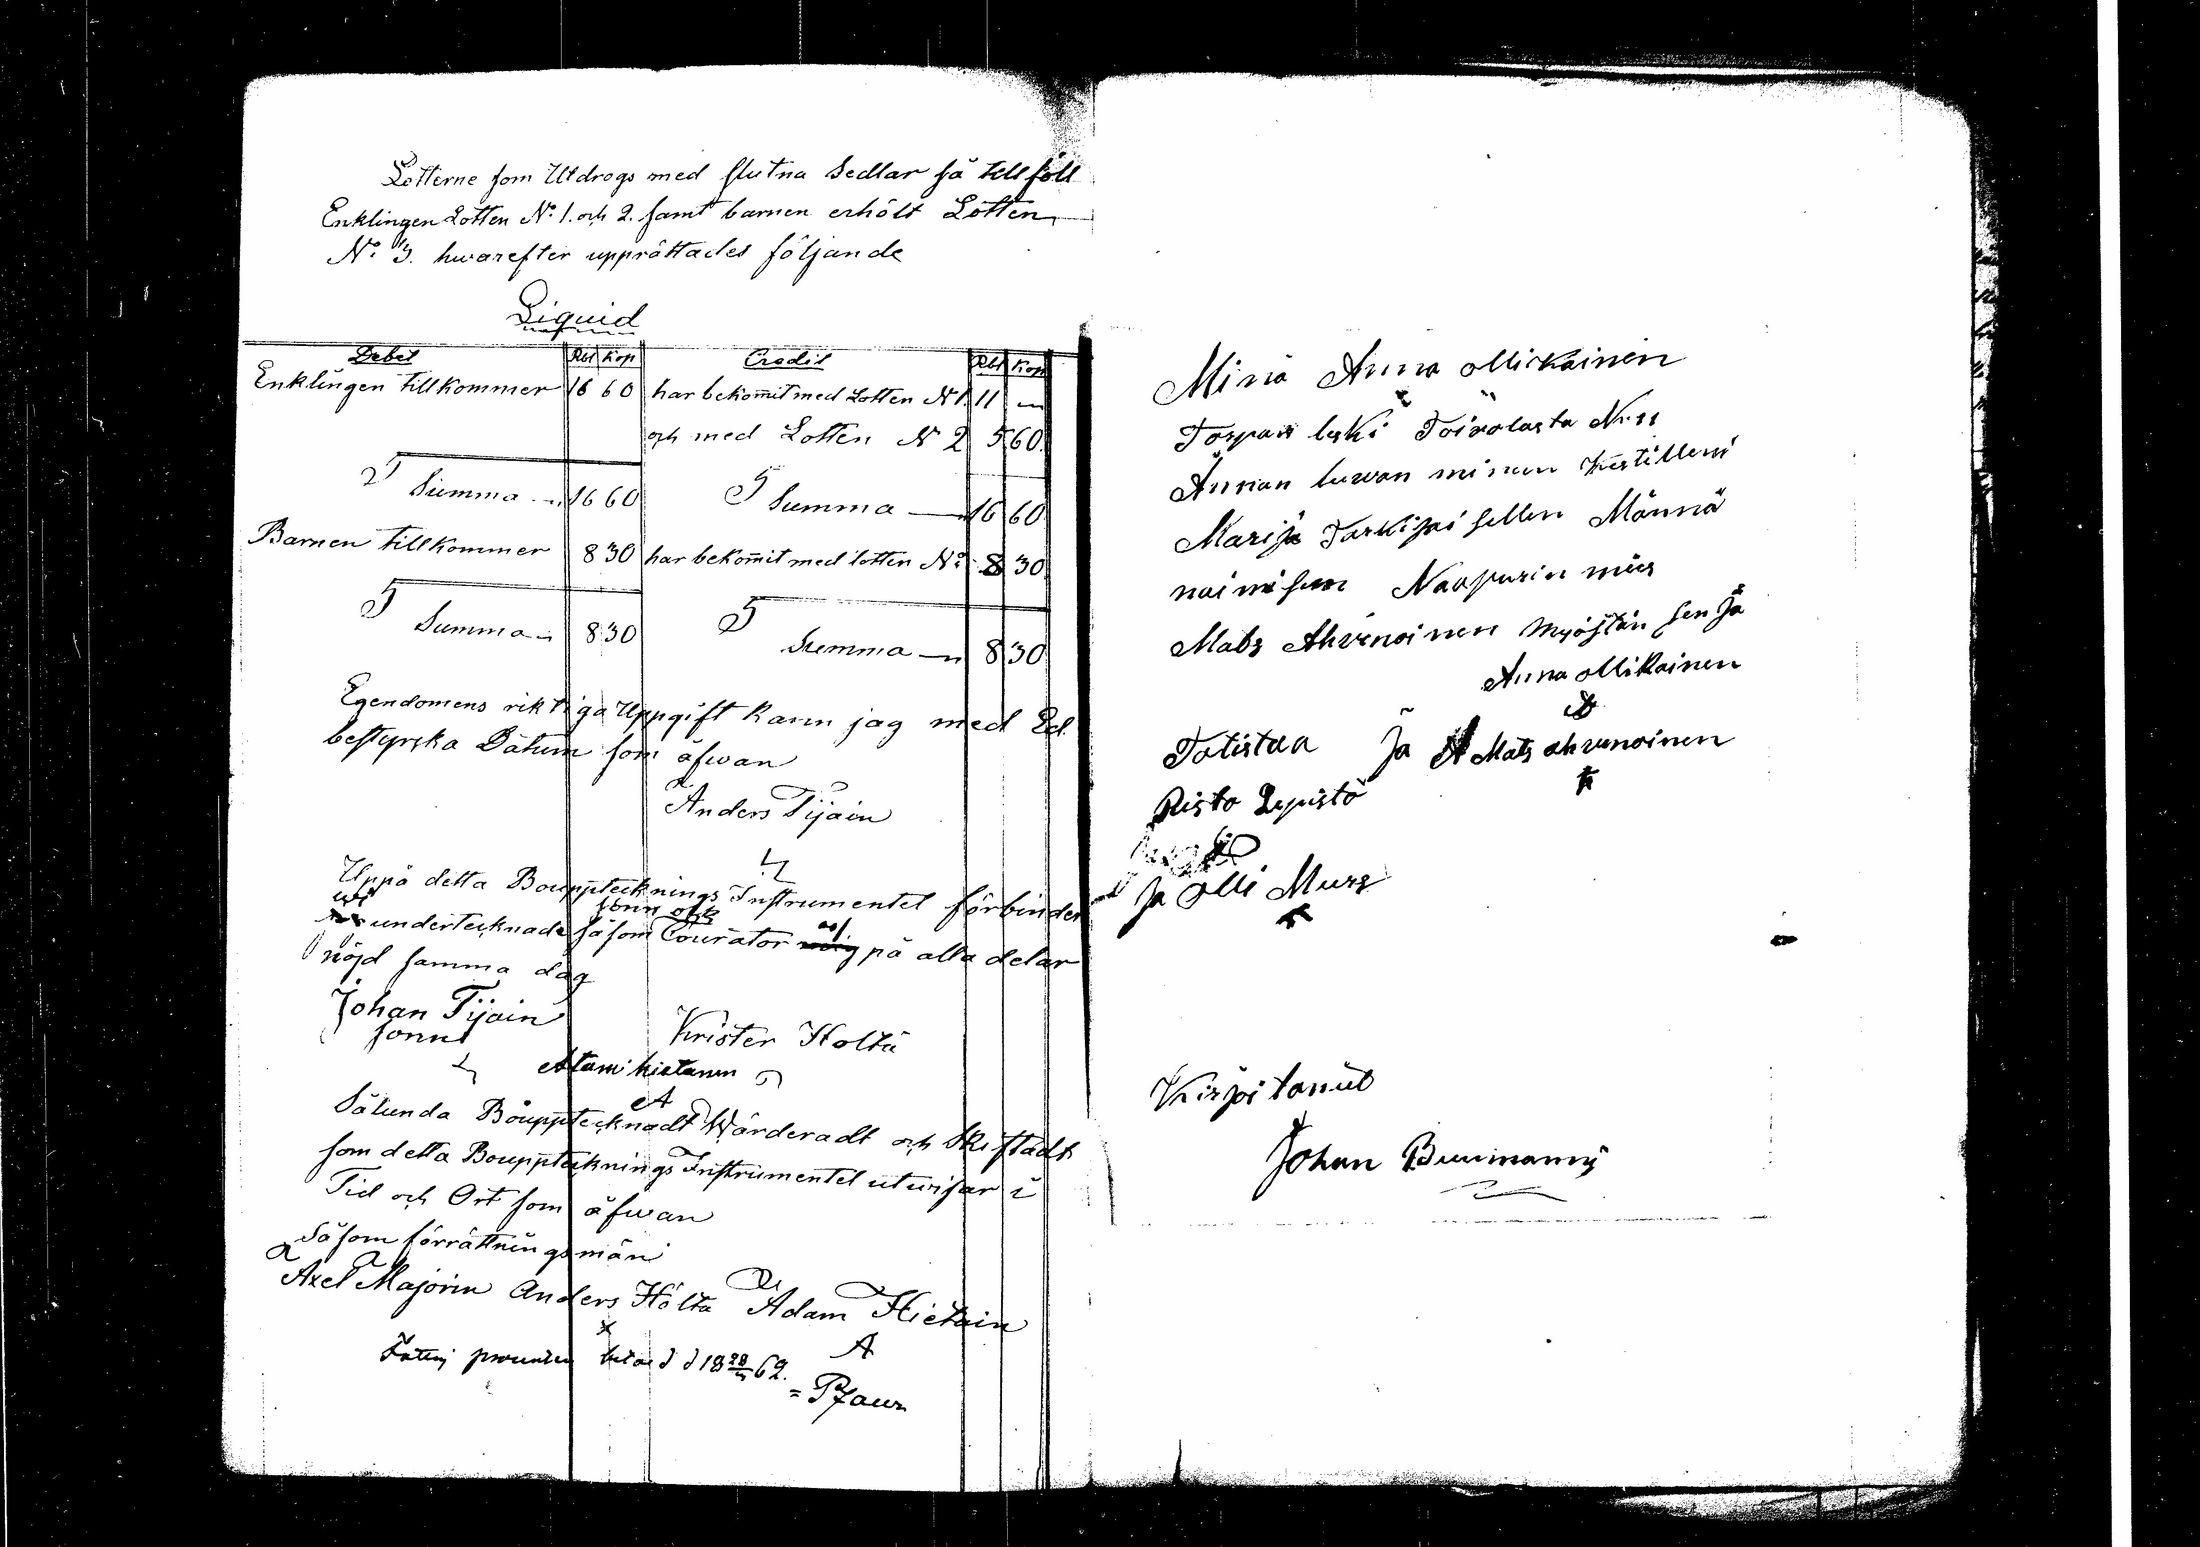 Lotterne som Utdrogs med slutna Sedlar så tillföll
Enklingen Lotten No 1. och 2. samt barnen erhölt Lotten
No 3. hwarefter upprättades följande
Liquid
Debet Rbl Kop Credit Rbl Kop
Enklingen tillkommer 16 60 har bekom̄it med Lotten N 1. 11 —
och med Lotten N 2 5 60.
Summa — 16 60 Summa — 16 60
Barnen tillkommer 8 30 har bekom̄it med lotten No 8 30
Summa — 8 30 Summa — 8 30
Egendomens riktiga Uppgift kann jag med Ed
bestyrska Datum som åfwan
Anders Tijain
Uppå detta Bouppteknings Instrumentet förbinder
wi sonn och
undertecknade såsom Courator oss på alla delar
nöjd samma dag
Johan Tijain
sonn
Krister Holta
Atami hietanen
A
Sålunda Bouppteknadt Wärderadt och Skiftadt
som detta Bouppteknings Instrumentet utwisar i
Tid och Ort som åfwan
Såsom förrättningsmän
Axel Majorin Anders Hölta Adam Hietain
A
betald d 18 62.
Minä Anna ollickainen
leski Toirolasta No 11
Annan luwan minun
Marija Männä
naimisen Naapurin mies
Mats Ahwenoinen myöstän sen ja
Anna ollikainen
Totistaa Ja Mats ahwenoinen
Risto Lepistö
Ja olli Muss
Kirjoitanut
Johan Buumanni